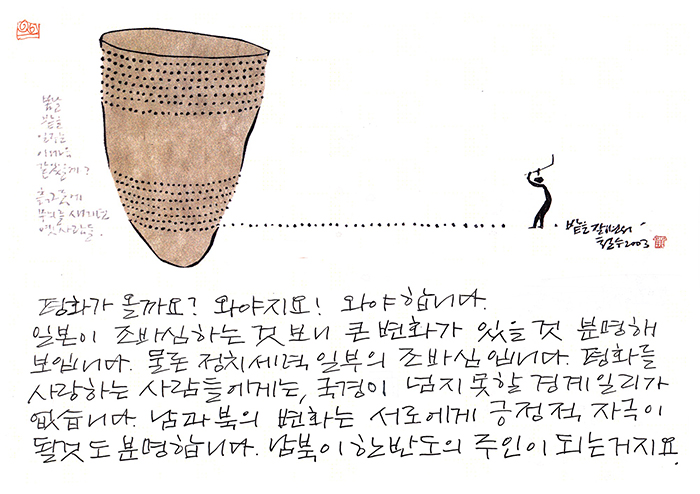 봄날
밭을
일구는
이 마음
같았을게?
흙그릇에
무늬를 새기던
옛사람들.
밭을 갈면서
철수 2003
평화가 올까요? 와야지요! 와야 합니다.
일본이 조바심하는 것 보니 큰 변화가 있을 것 분명해
보입니다. 물론 정치세력 일부의 조바심입니다. 평화를
사랑하는 사람들에게는, 국경이 넘지 못할 경계일리가
없습니다. 남과 북의 변화는 서로에게 긍정적 자극이
될것도 분명합니다. 남북이 한반도의 주인이 되는거지요.